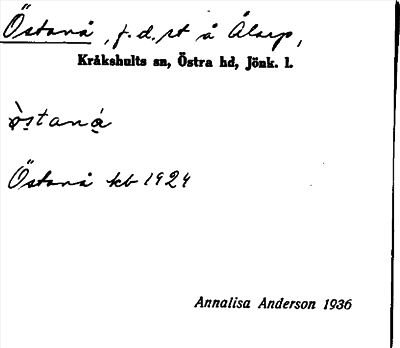 Östanå, f.d. st å Ålarp,
Kråkshults sn, Östra hd, Jönk. l.
ò̤stanå̤
Östanå kb 1924
Annalisa Anderson 1936